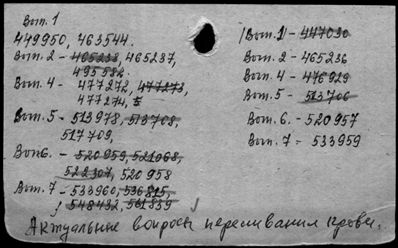 Вып. 1
449950, 463544.
Вып. 2 - 465238, 465237,
495582.
Вып. 4 - 477272, 477273,
477274, 5
Вып. 5 - 513978, 513708,
517709,
Вып 6. - 520959, 521068,
522307, 520958
Вып. 7 - 533960, 536815,
548432, 561839
Вып. 1 - 447030
Вып. 2 - 465236
Вып. 4 - 476929
Вып. 5 - 513706
Вып. 6. - 520957
Вып. 7 - 533959
Актуальные вопросы переливания крови.